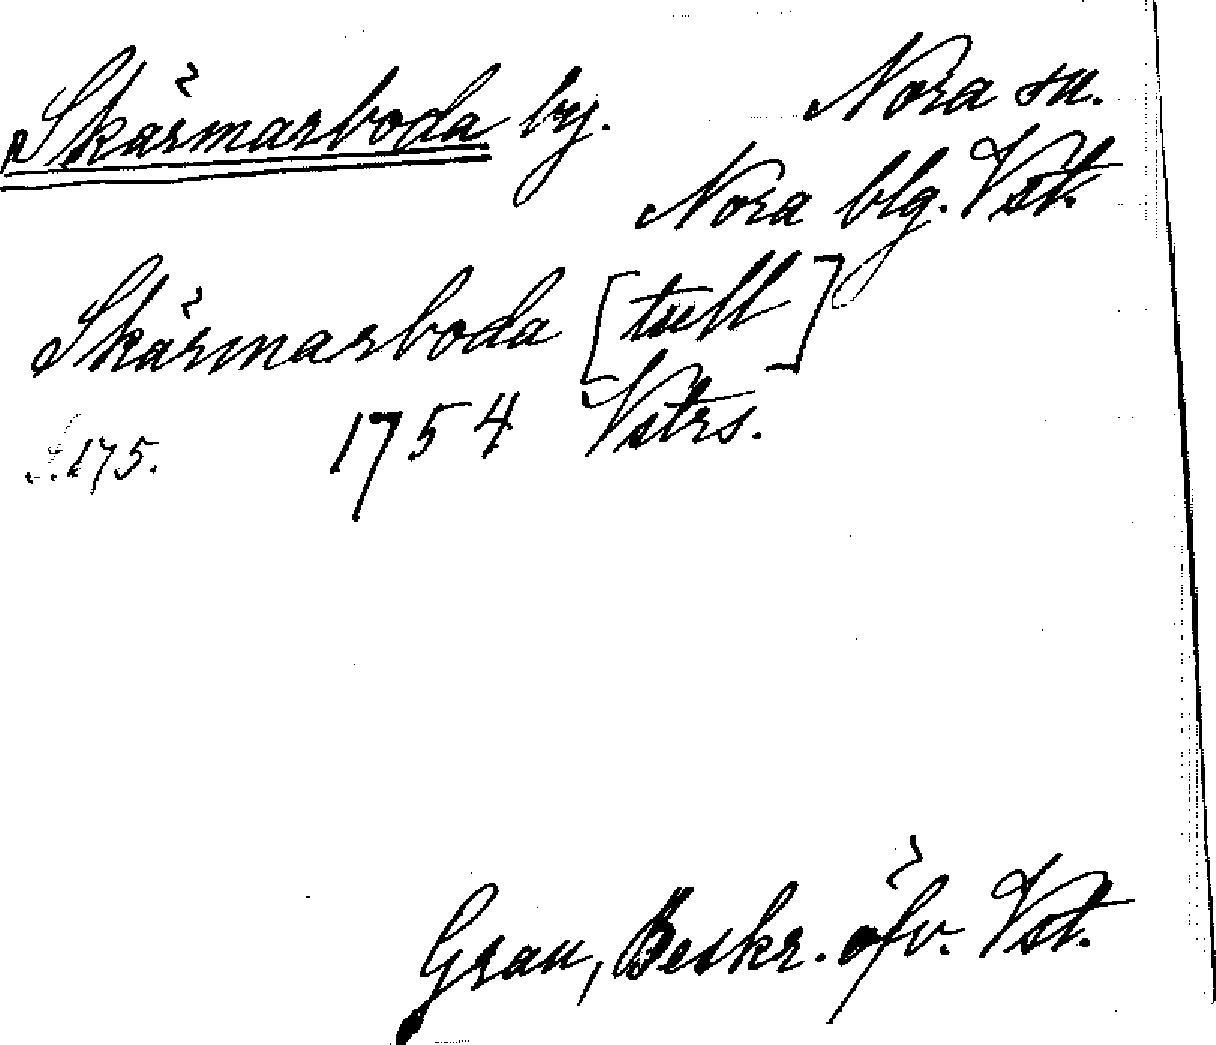 Skärmarboda by. Nora sn.
Nora blg. Vst.
Skärmarboda [tull]
S. 175. 1754 Vstrs.
Grau, Beskr. öfv. Vst.